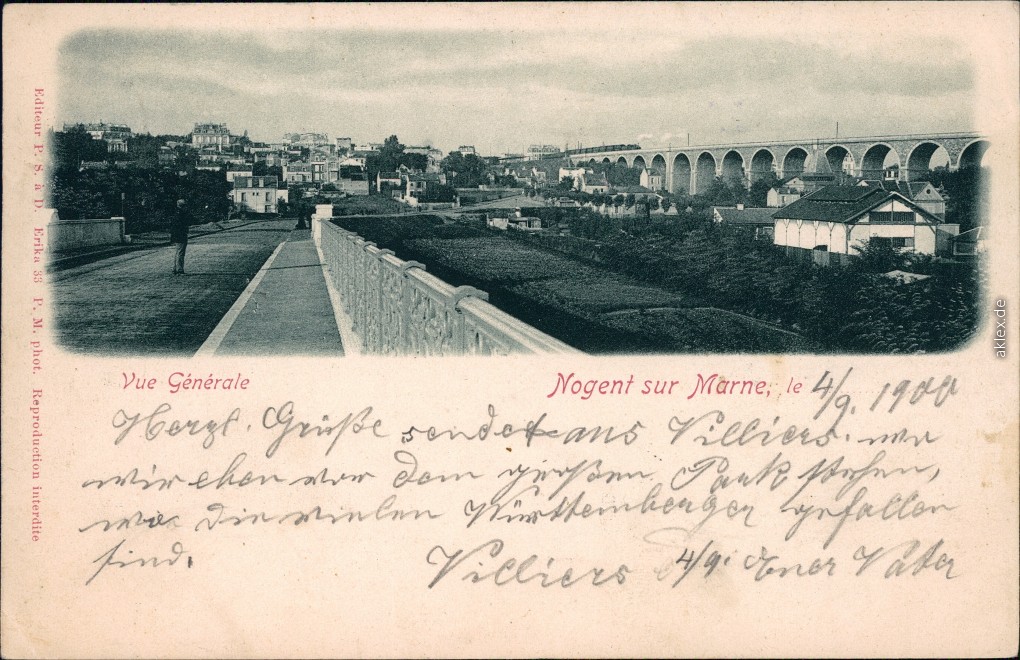 Editeur P. S. à D. Erika 33 P. M. phot. Reproduction interdite
Vue Générale
Nogent sur Marne, le 4/9. 1900
Herzl. Grüße sendet aus Villiers. wo
wir eben vor dem großen Park stehen,
wo die vielen Württemberger gefallen
sind.
Villiers 4/9. Euer Vater
aklex.de